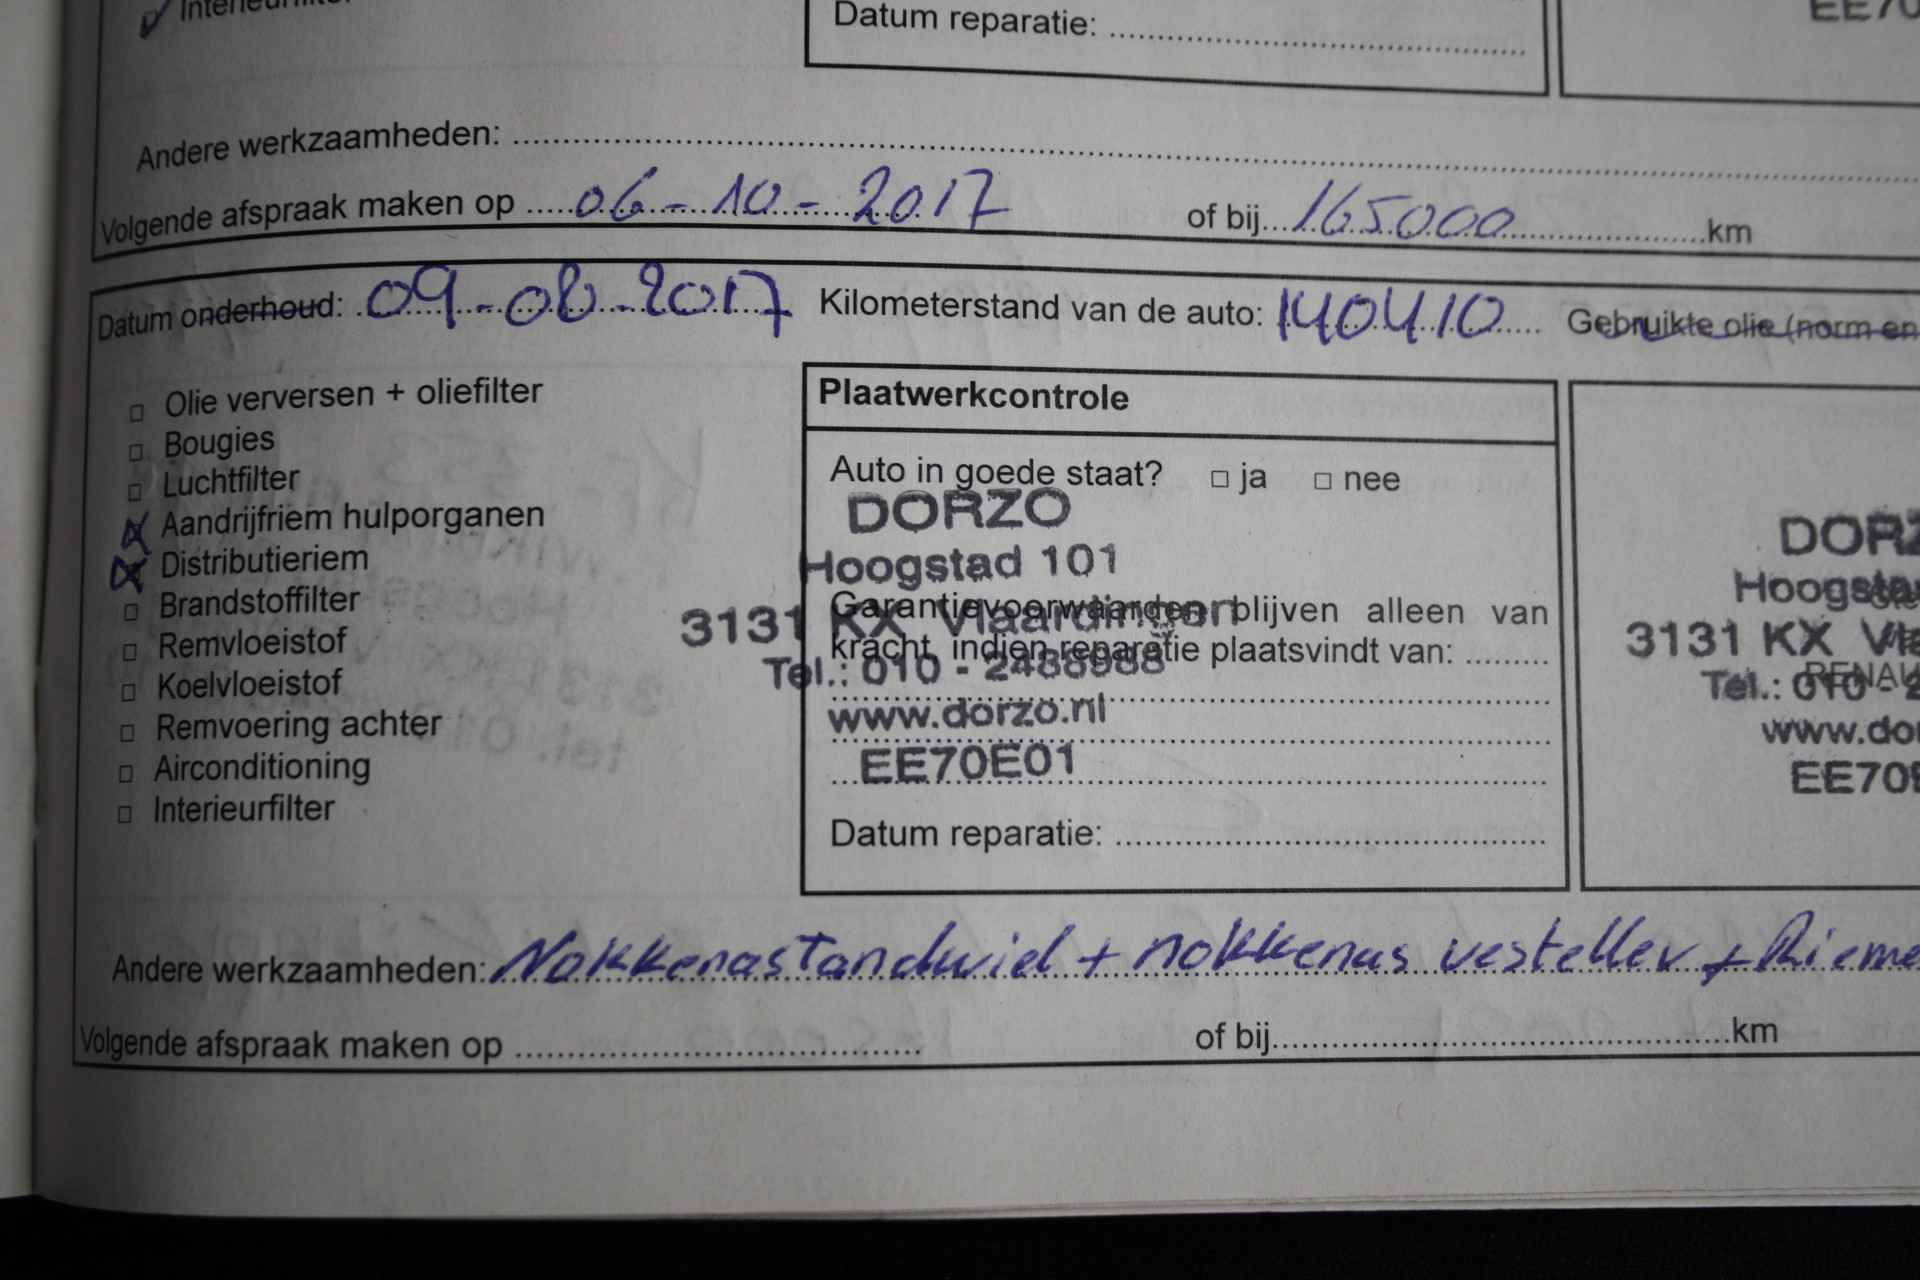 Interieurfilter
Datum reparatie:
EE70
Andere werkzaamheden:
Volgende afspraak maken op 06-10-2017 of bij 165000 km
Datum onderhoud: 09-08-2017 Kilometerstand van de auto: 140410 Gebruikte olie (norm en
Olie verversen + oliefilter
Bougies
Luchtfilter
Aandrijfriem hulporganen
Distributieriem
Brandstoffilter
Remvloeistof
Koelvloeistof
Remvoering achter
Airconditioning
Interieurfilter
Plaatwerkcontrole
Auto in goede staat? ja nee
DORZO
Hoogstad 101
Garantievoorwaarden blijven alleen van
3131 KX Vlaardingen
kracht, indien reparatie plaatsvindt van:
Tel.: 010 - 2488988
www.dorzo.nl
EE70E01
Datum reparatie:
DORZ
Hoogsta
3131 KX Vla
RENAU
Tel.: 010 - 2
www.do
EE70E
Andere werkzaamheden: Nokkenastandwiel + nokkenas vesteller + Rieme
Volgende afspraak maken op of bij km